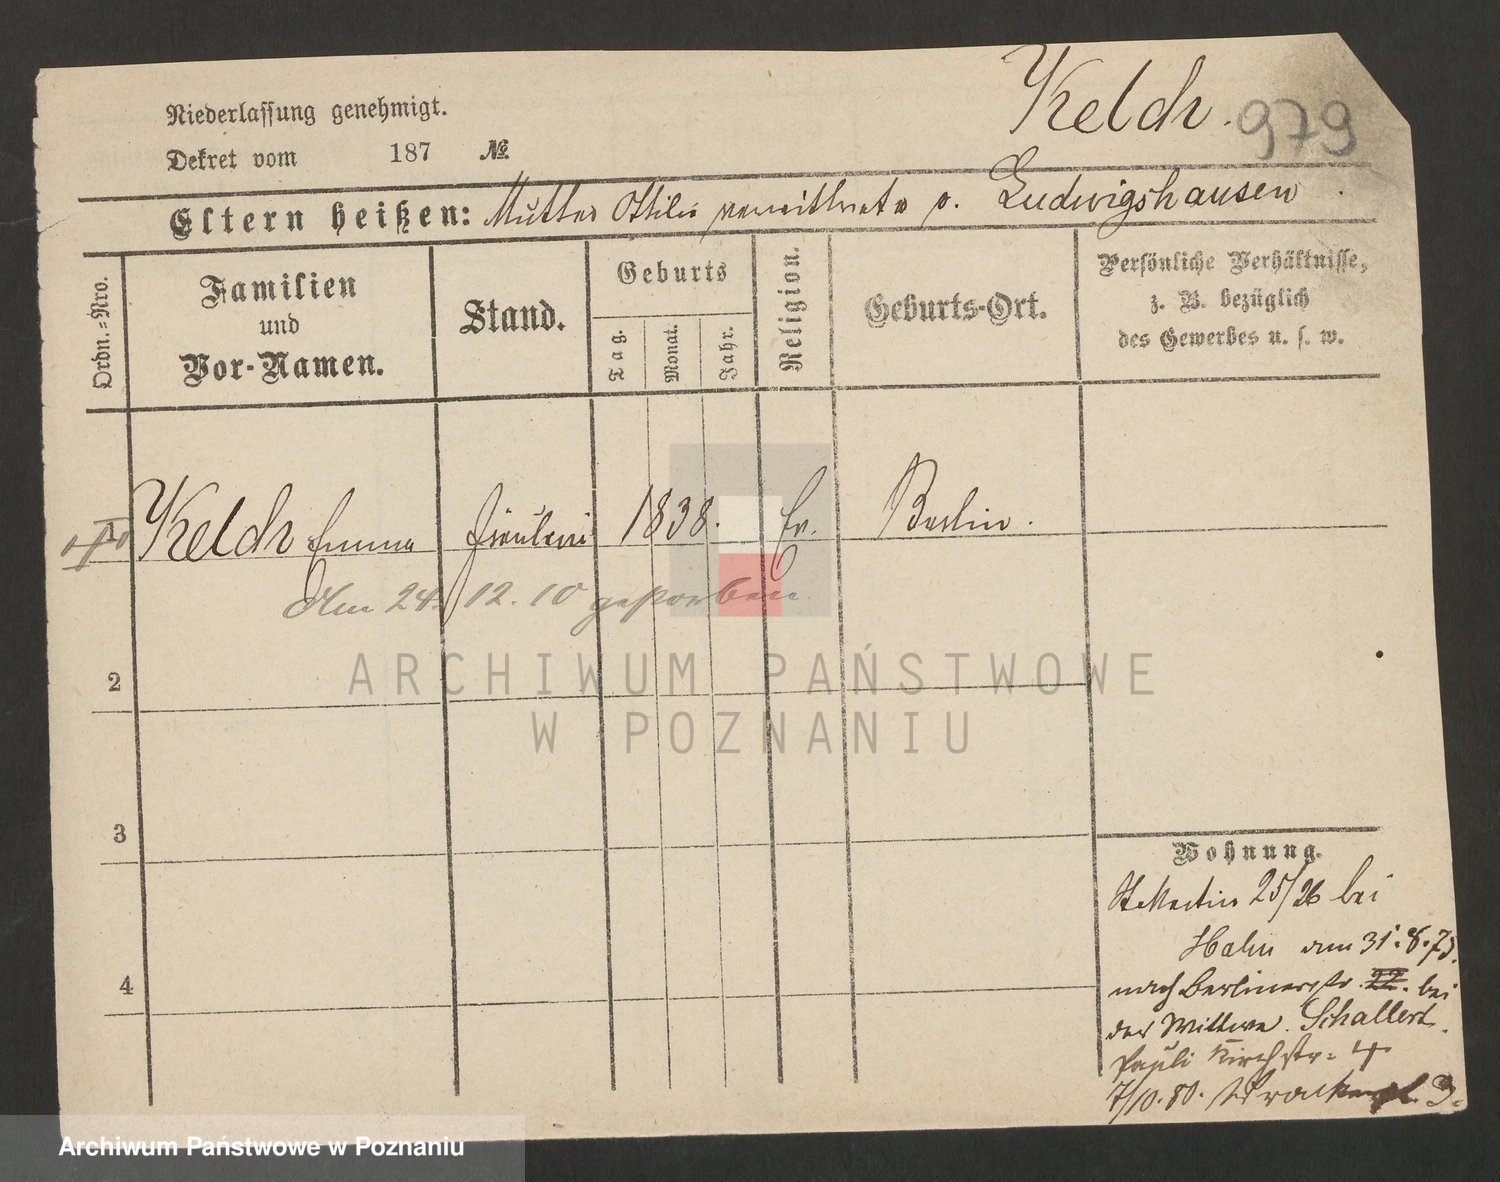 Niederlassung genehmigt.
Keldr. 979
Dekret vom 187 №
Eltern heißen: Mutter Ottilie verwittwete v. Ludwigshausen
Ordn.=Nro.
Familien und Vor-Namen.
Stand.
Geburts
Tag.
Monat.
Jahr.
Religion.
Geburts-Ort.
Persönliche Verhältnisse,
z. B. bezüglich
des Gewerbes u. s. w.
Keldr Emma Fräulein 1838. Ev. Berlin.
Am 24. 12. 10 gestorben.
2
3
4
Wohnung.
St Martin 25/26 bei
Hahn am 31.8.75.
nach Berlinerstr. 22. bei
der Wittwe. Schallert.
Pauli Kirchstr. 4
7/10.80. 3.
ARCHIWUM PAŃSTWOWE
W POZNANIU
Archiwum Państwowe w Poznaniu